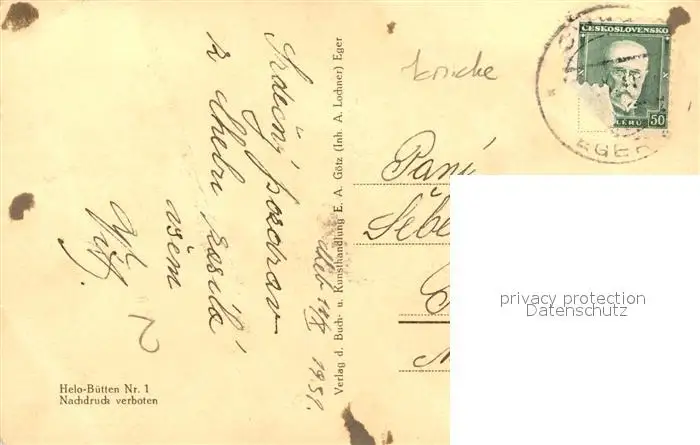 Srdečný pozdrav
z Chebu posílá
všem
Cheb 14/X 1931.
Verlag d. Buch- u. Kunsthandlung E. A. Götz (Inh. A. Lochner) Eger
Helo-Bütten Nr. 1
Nachdruck verboten
knicke
ČESKOSLOVENSKO
50
EGER
Paní
privacy protection
Datenschutz